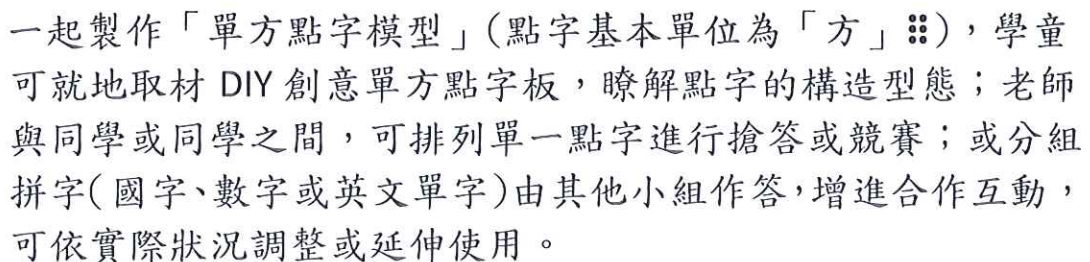 一起製作「單方點字模型」(點字基本單位為「方」⠿),學童
可就地取材 DIY 創意單方點字板,瞭解點字的構造型態;老師
與同學或同學之間,可排列單一點字進行搶答或競賽;或分組
拼字(國字、數字或英文單字)由其他小組作答,增進合作互動,
可依實際狀況調整或延伸使用。